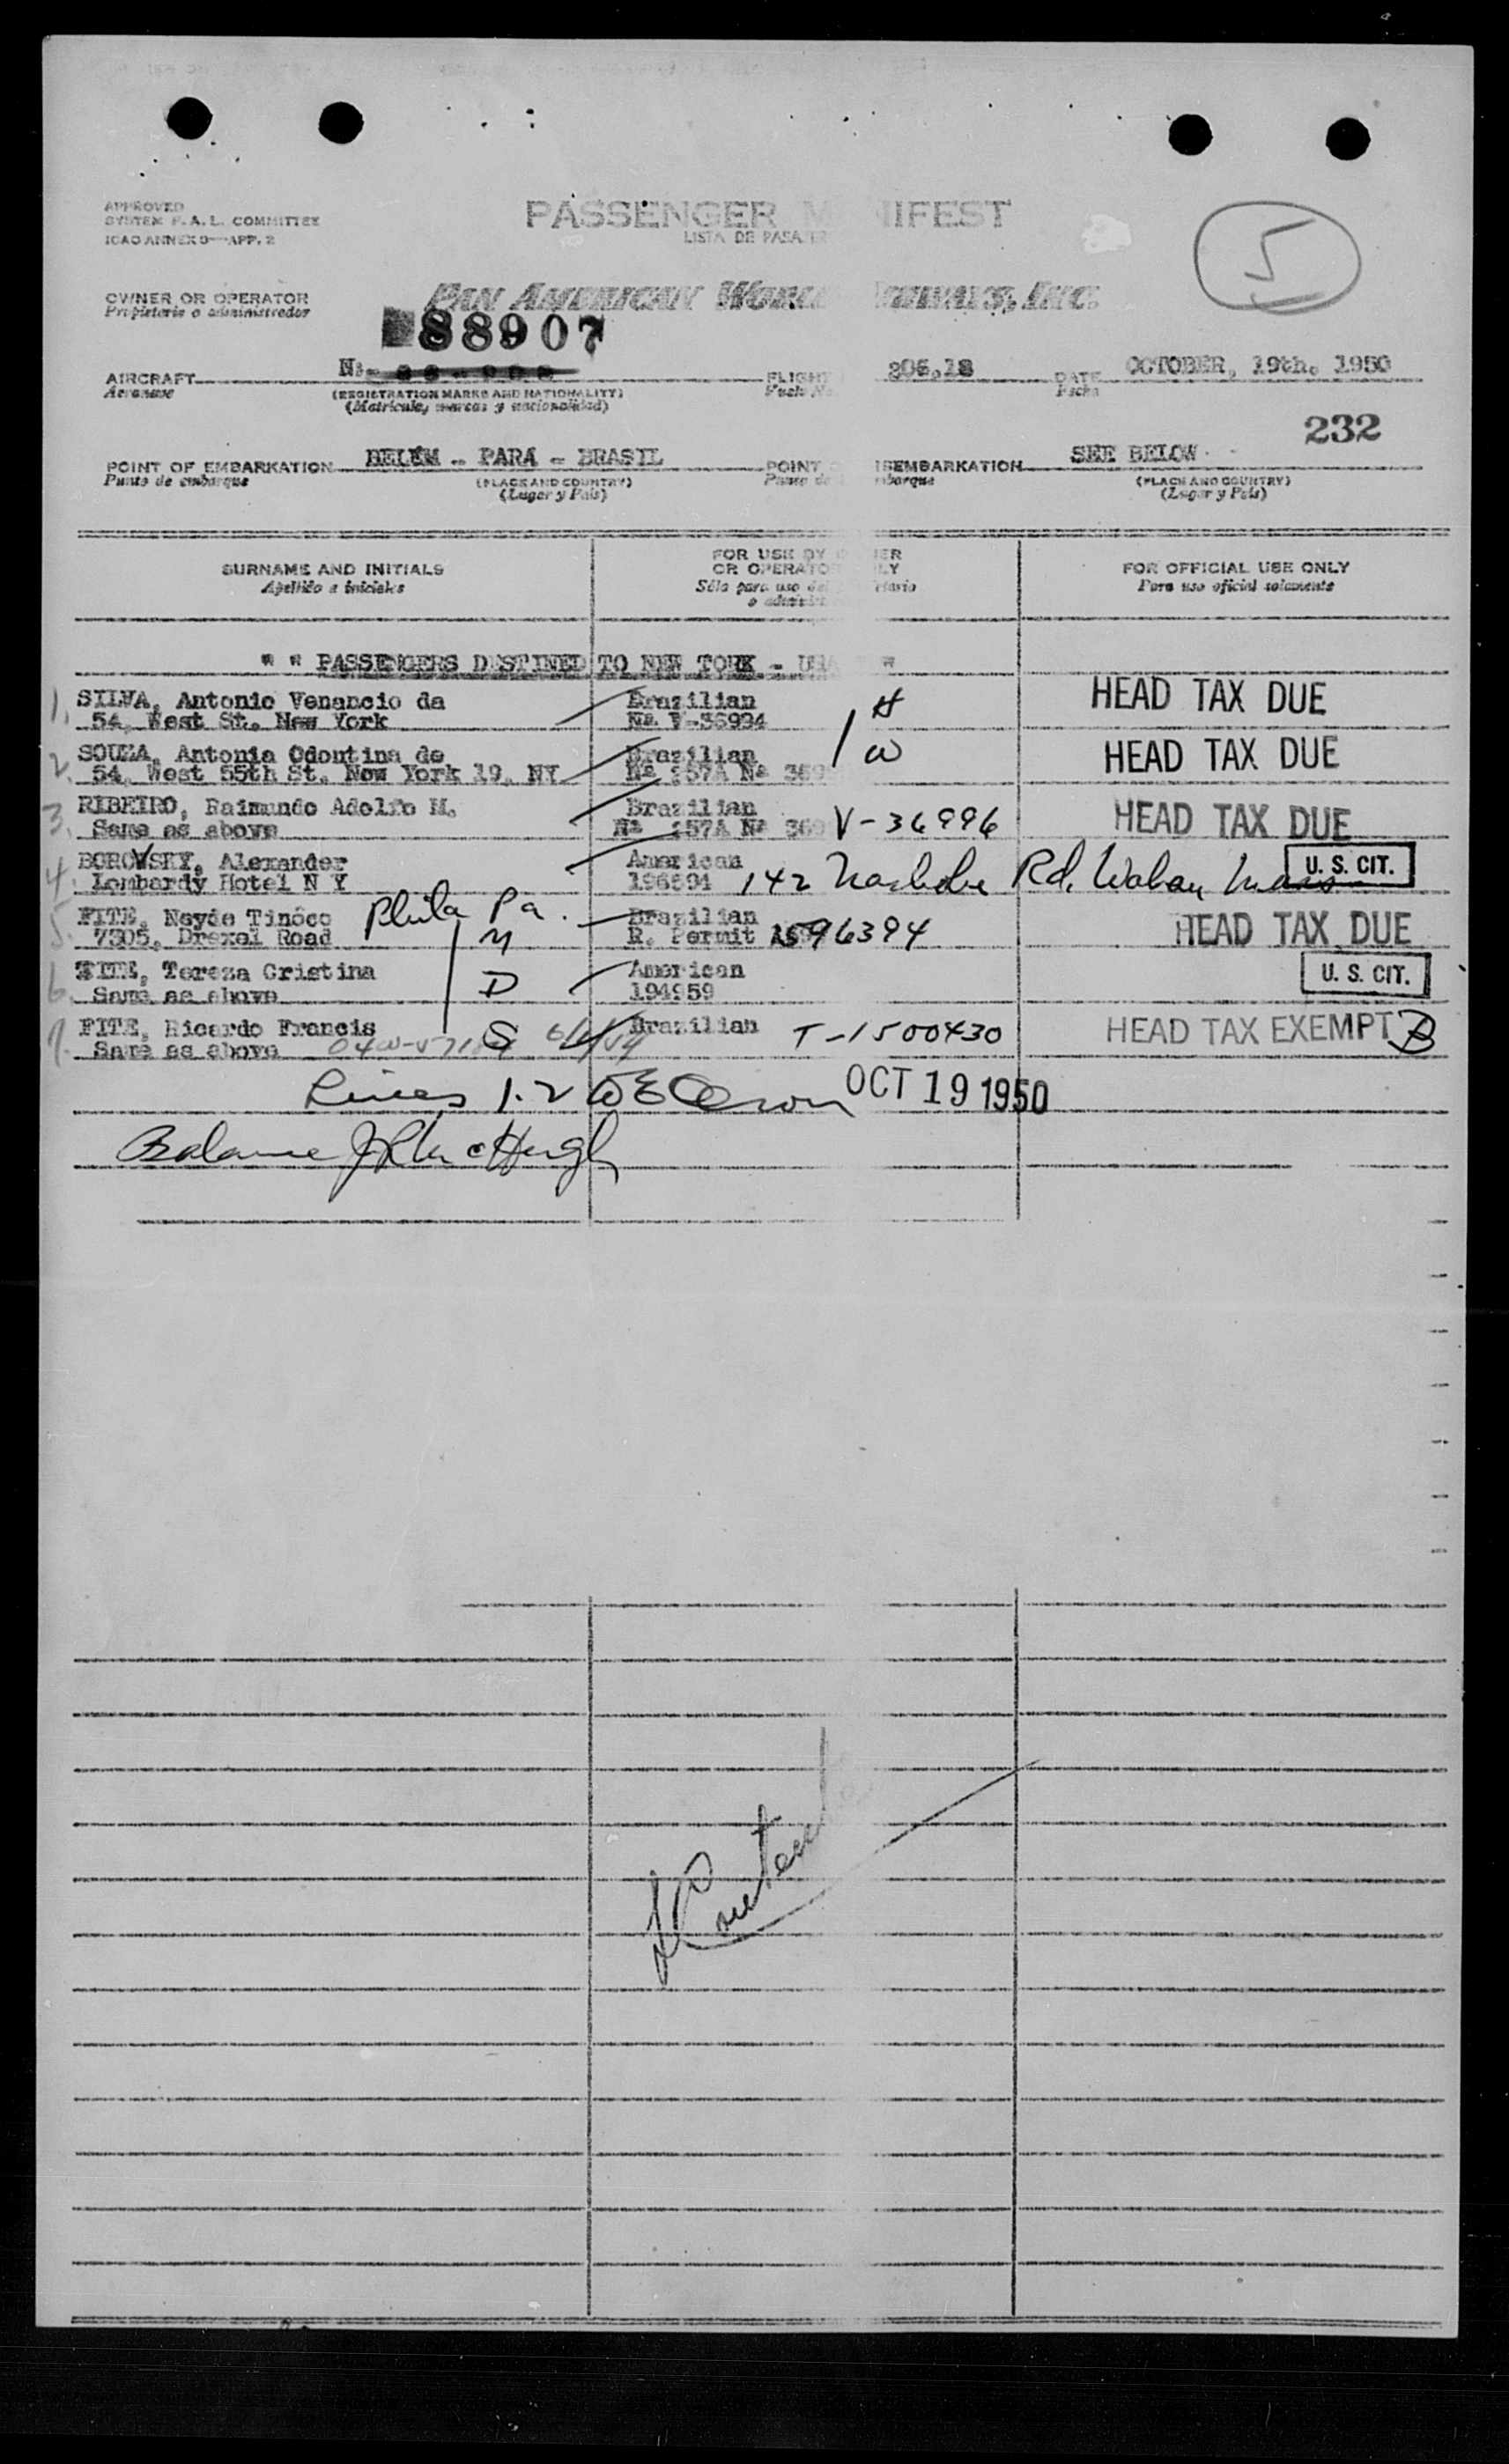 APPROVED
SYSTEM F.A.L. COMMITTEE
ICAO ANNEX 9—APP. 2
PASSENGER M NIFEST
LISTA DE PASAJER
5
OWNER OR OPERATOR
Propietario o administrador
PAN AMERICAN WORL AIRWAYS, INC.
88907
AIRCRAFT
Aeronave
(REGISTRATION MARKS AND NATIONALITY)
(Matrícula, marcas y nacionalidad)
FLIGHT 206,18
DATE OCTOBER, 19th. 1950
Fecha
232
POINT OF EMBARKATION BELEM - PARÁ - BRASIL
Punto de embarque
(PLACE AND COUNTRY)
(Lugar y País)
POINT ISEMBARKATION SEE BELOW
Punto de mbarque
(PLACE AND COUNTRY)
(Lugar y País)
SURNAME AND INITIALS
Apellido e iniciales
FOR USE BY ER
OR OPERATO LY
Sólo para uso del etario
o administ
FOR OFFICIAL USE ONLY
Para uso oficial solamente
" " PASSENGERS DESTINED TO NEW YORK - USA "
1. SILVA, Antonio Venancio da Brazilian H HEAD TAX DUE
54, West St. New York Nº V-36994
2. SOUZA, Antonia Odontina de Brazilian W HEAD TAX DUE
54, West 55th St. New York 19, NY Nº 257A Nº 369
3. RIBEIRO, Raimundo Adolfo M. Brazilian V-36996 HEAD TAX DUE
Same as above Nº 257A Nº 369
4. BOROVSKY, Alexander American U. S. CIT.
Lombardy Hotel N Y 196594 142 Rd. Waban Mass
5. FITE, Nayde Tinôco Phila Pa. Brazilian HEAD TAX DUE
7305, Drexel Road M R. Permit 1596394
6. FITE, Tereza Cristina D American U. S. CIT.
Same as above 194959
7. FITE, Ricardo Francis S Brazilian T-1500430 HEAD TAX EXEMPT B
Same as above
Lines 1.2 OCT 19 1950
Balance